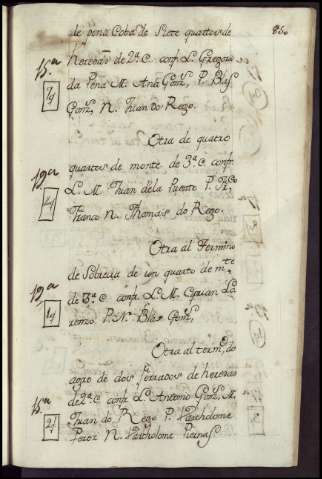 de pena Coba de Siete quartos de
86.
15.a
herenas de 2.a C. conf. L. Gregorio
da Pena M. Ana Gonz, P. Blas
Gonz, N. Juan do Rego.
Otra de quatro
19.a
quartos de monte de 3.a C conf.
L. M. Juan dela Puente P.
Franco N. Thomas do Rego.
Otra al Termino
de Sobreda de un quarto de m.te
19.a
de 3.a C. conf. L. M. Ciprian Lo
renzo P. N. Blas Gonz,
Otra al term.o do
agro de dos ferrados de herenas
15.a
de 2.a C conf. L. Antonio Gonz, M.
Juan do Rego P. Bartholome
Perez N. Bartholome